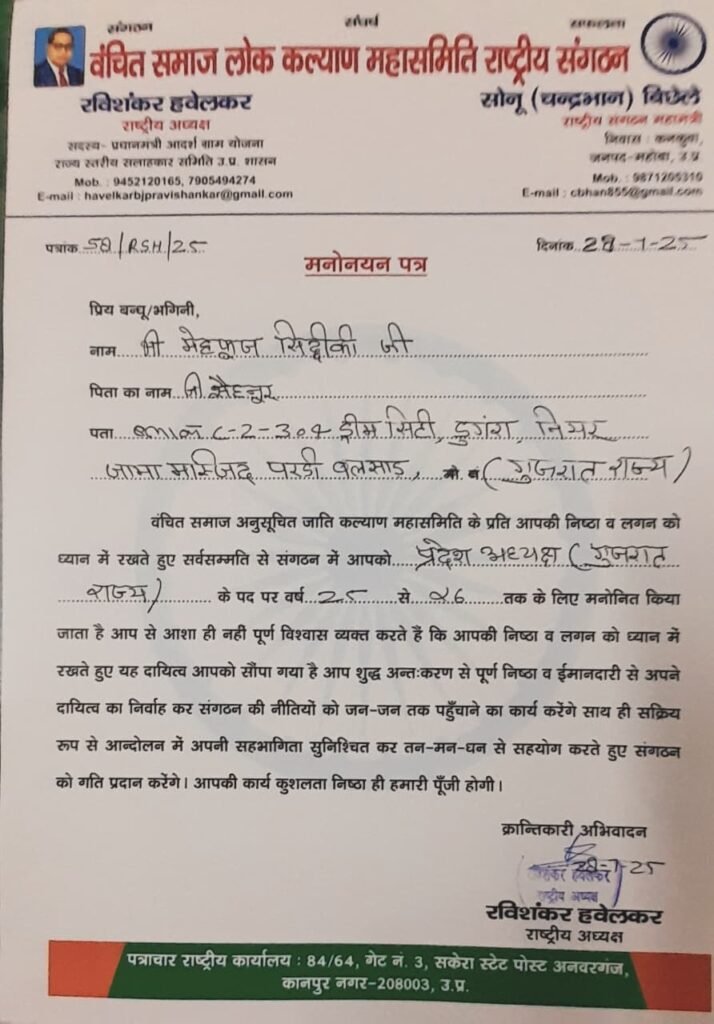 संगठन संघर्ष सफलता
वंचित समाज लोक कल्याण महासमिति राष्ट्रीय संगठन
रविशंकर हवेलकर
राष्ट्रीय अध्यक्ष
सदस्य- प्रधानमंत्री आदर्श ग्राम योजना
राज्य स्तरीय सलाहकार समिति उ.प्र. शासन
Mob. : 9452120165, 7905494274
E-mail : havelkarbjpravishankar@gmail.com
सोनू (चन्द्रभान) बिछेले
राष्ट्रीय संगठन महामंत्री
निवास : कनकुवा,
जनपद-महोबा, उ.प्र.
Mob. : 9871205310
E-mail : cbhan855@gmail.com
पत्रांक 58/RSH/25 दिनांक 28-7-25
मनोनयन पत्र
प्रिय बन्धू/भगिनी,
नाम श्री मेहफूज सिद्दीकी जी
पिता का नाम श्री
पता C-2-304 ड्रीम सिटी, डुगंरा, नियर
जामा मस्जिद परडी वलसाड, (गुजरात राज्य)
वंचित समाज अनुसूचित जाति कल्याण महासमिति के प्रति आपकी निष्ठा व लगन को
ध्यान में रखते हुए सर्वसम्मति से संगठन में आपको प्रदेश अध्यक्ष (गुजरात
राज्य) के पद पर वर्ष 25 से 26 तक के लिए मनोनित किया
जाता है आप से आशा ही नहीं पूर्ण विश्वास व्यक्त करते हैं कि आपकी निष्ठा व लगन को ध्यान में
रखते हुए यह दायित्व आपको सौंपा गया है आप शुद्ध अन्तःकरण से पूर्ण निष्ठा व ईमानदारी से अपने
दायित्व का निर्वाह कर संगठन की नीतियों को जन-जन तक पहुँचाने का कार्य करेंगे साथ ही सक्रिय
रूप से आन्दोलन में अपनी सहभागिता सुनिश्चित कर तन-मन-धन से सहयोग करते हुए संगठन
को गति प्रदान करेंगे। आपकी कार्य कुशलता निष्ठा ही हमारी पूँजी होगी।
क्रान्तिकारी अभिवादन
28-7-25
हवेलकर
राष्ट्रीय अध्यक्ष
रविशंकर हवेलकर
राष्ट्रीय अध्यक्ष
पत्राचार राष्ट्रीय कार्यालय : 84/64, गेट नं. 3, सकेरा स्टेट पोस्ट अनवरगंज,
कानपुर नगर-208003, उ.प्र.